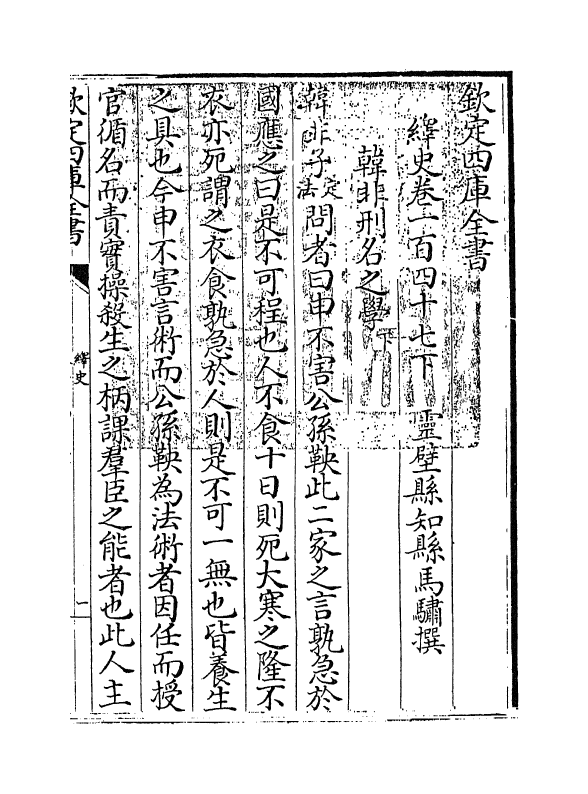 欽定四庫全書
繹史卷一百四十七下 靈壁縣知縣馬驌撰
韓非刑名之學下
韓非子定法問者曰申不害公孫鞅此二家之言孰急於
國應之曰是不可程也人不食十日則死大寒之隆不
衣亦死謂之衣食孰急於人則是不可一無也皆養生
之具也今申不害言術而公孫鞅為法術者因任而授
官循名而責實操殺生之柄課羣臣之能者也此人主
欽定四庫全書
繹史
一